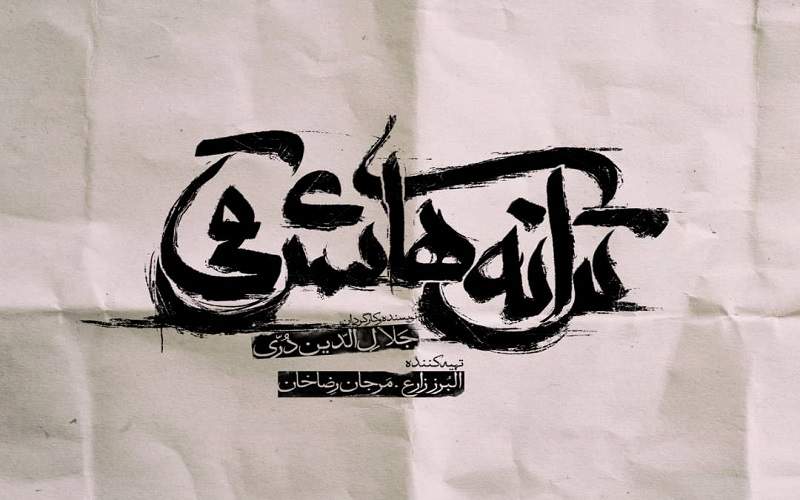 ترانه های شرقی
نویسنده و کارگردان
جلال الدین دُرّی
تهیه کننده
البرز زارع . مرجان رضاخان